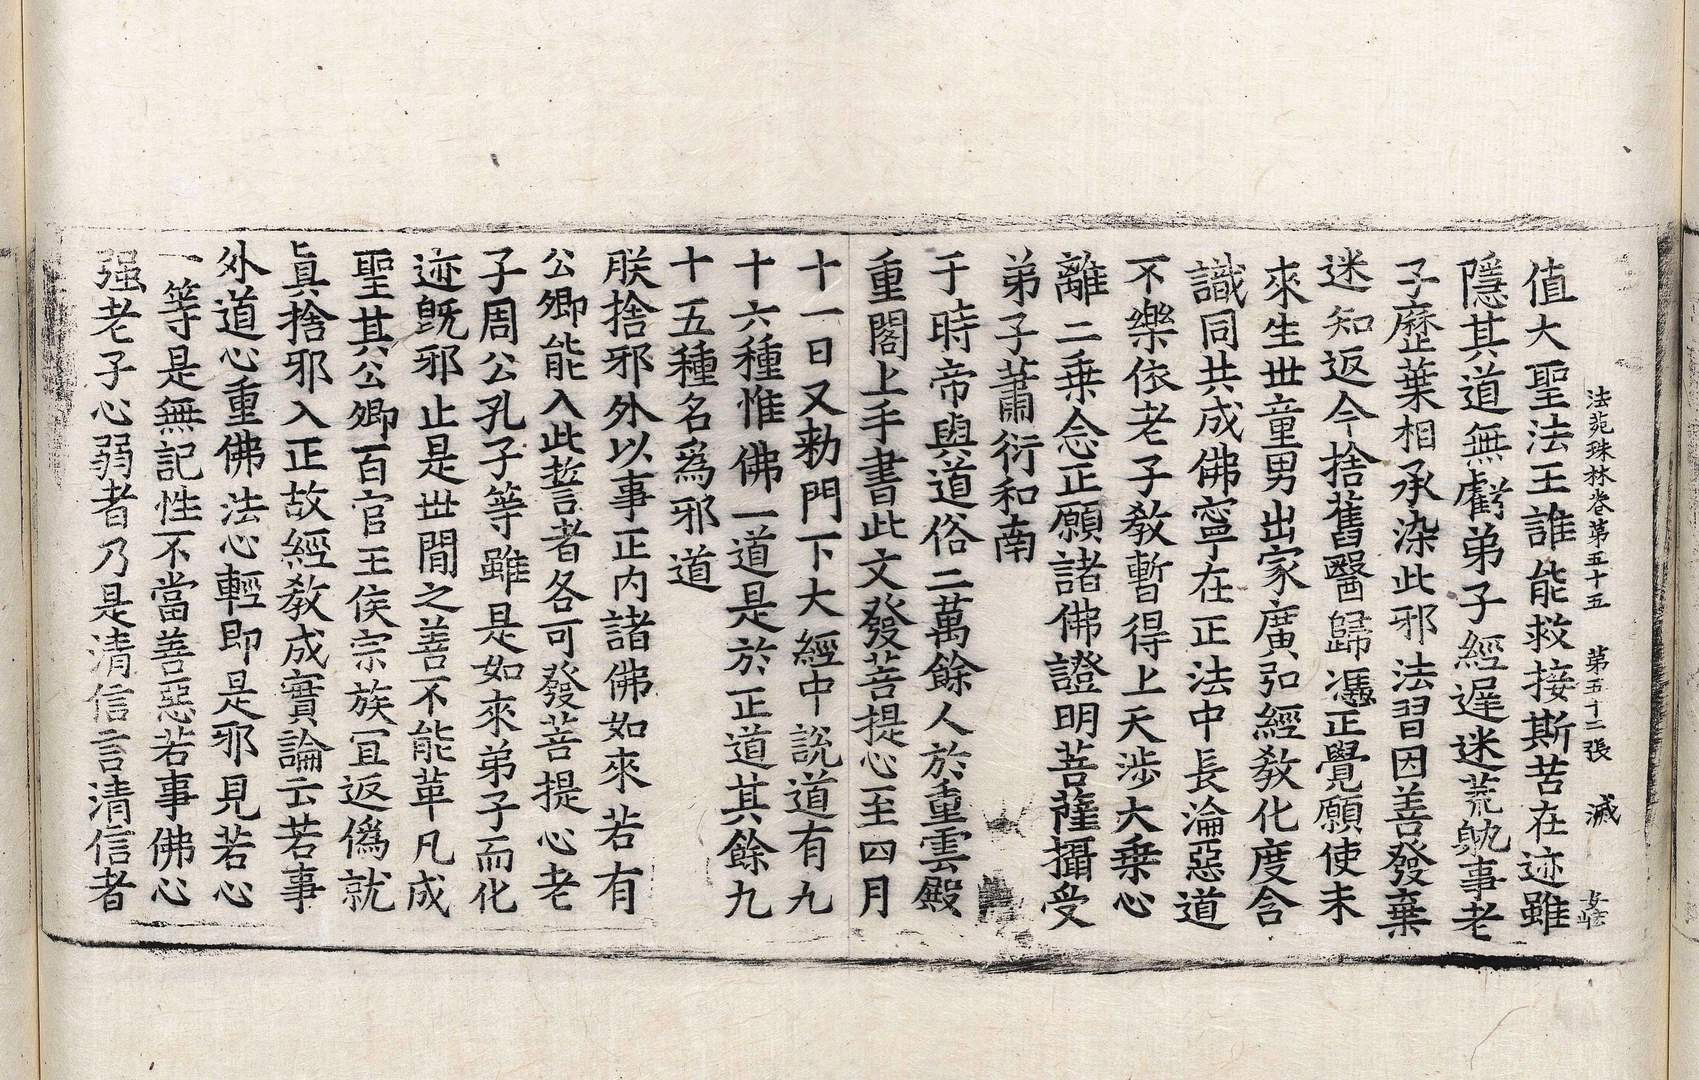 法苑珠林卷第五十五　第五十二張　滅
值大聖法王誰能救接斯苦在迹雖
隱其道無虧弟子經遅迷荒躭事老
子歷葉相承染此邪法習因善發棄
迷知返今捨舊醫歸憑正覺願使未
來生世童男出家廣弘經教化度含
識同共成佛寧在正法中長淪惡道
不樂依老子教暫得上天涉大乗心
離二乗念正願諸佛證明菩薩攝受
弟子蕭衍和南
于時帝與道俗二萬餘人於重雲殿
重閣上手書此文發菩提心至四月
十一日又勑門下大經中說道有九
十六種惟佛一道是於正道其餘九
十五種名爲邪道
朕捨邪外以事正内諸佛如來若有
公卿能入此誓者各可發菩提心老
子周公孔子等雖是如來弟子而化
迹旣邪止是世間之善不能革凡成
聖其公卿百官王侯宗族冝返僞就
眞捨邪入正故經教成實論云若事
外道心重佛法心輕即是邪見若心
一等是無記性不當善惡若事佛心
强老子心弱者乃是清信言清信者